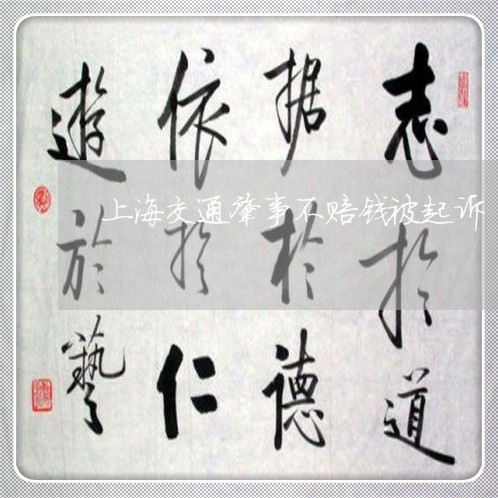 志於道
据於德
依於仁
遊於藝
上海交通肇事不赔钱被起诉